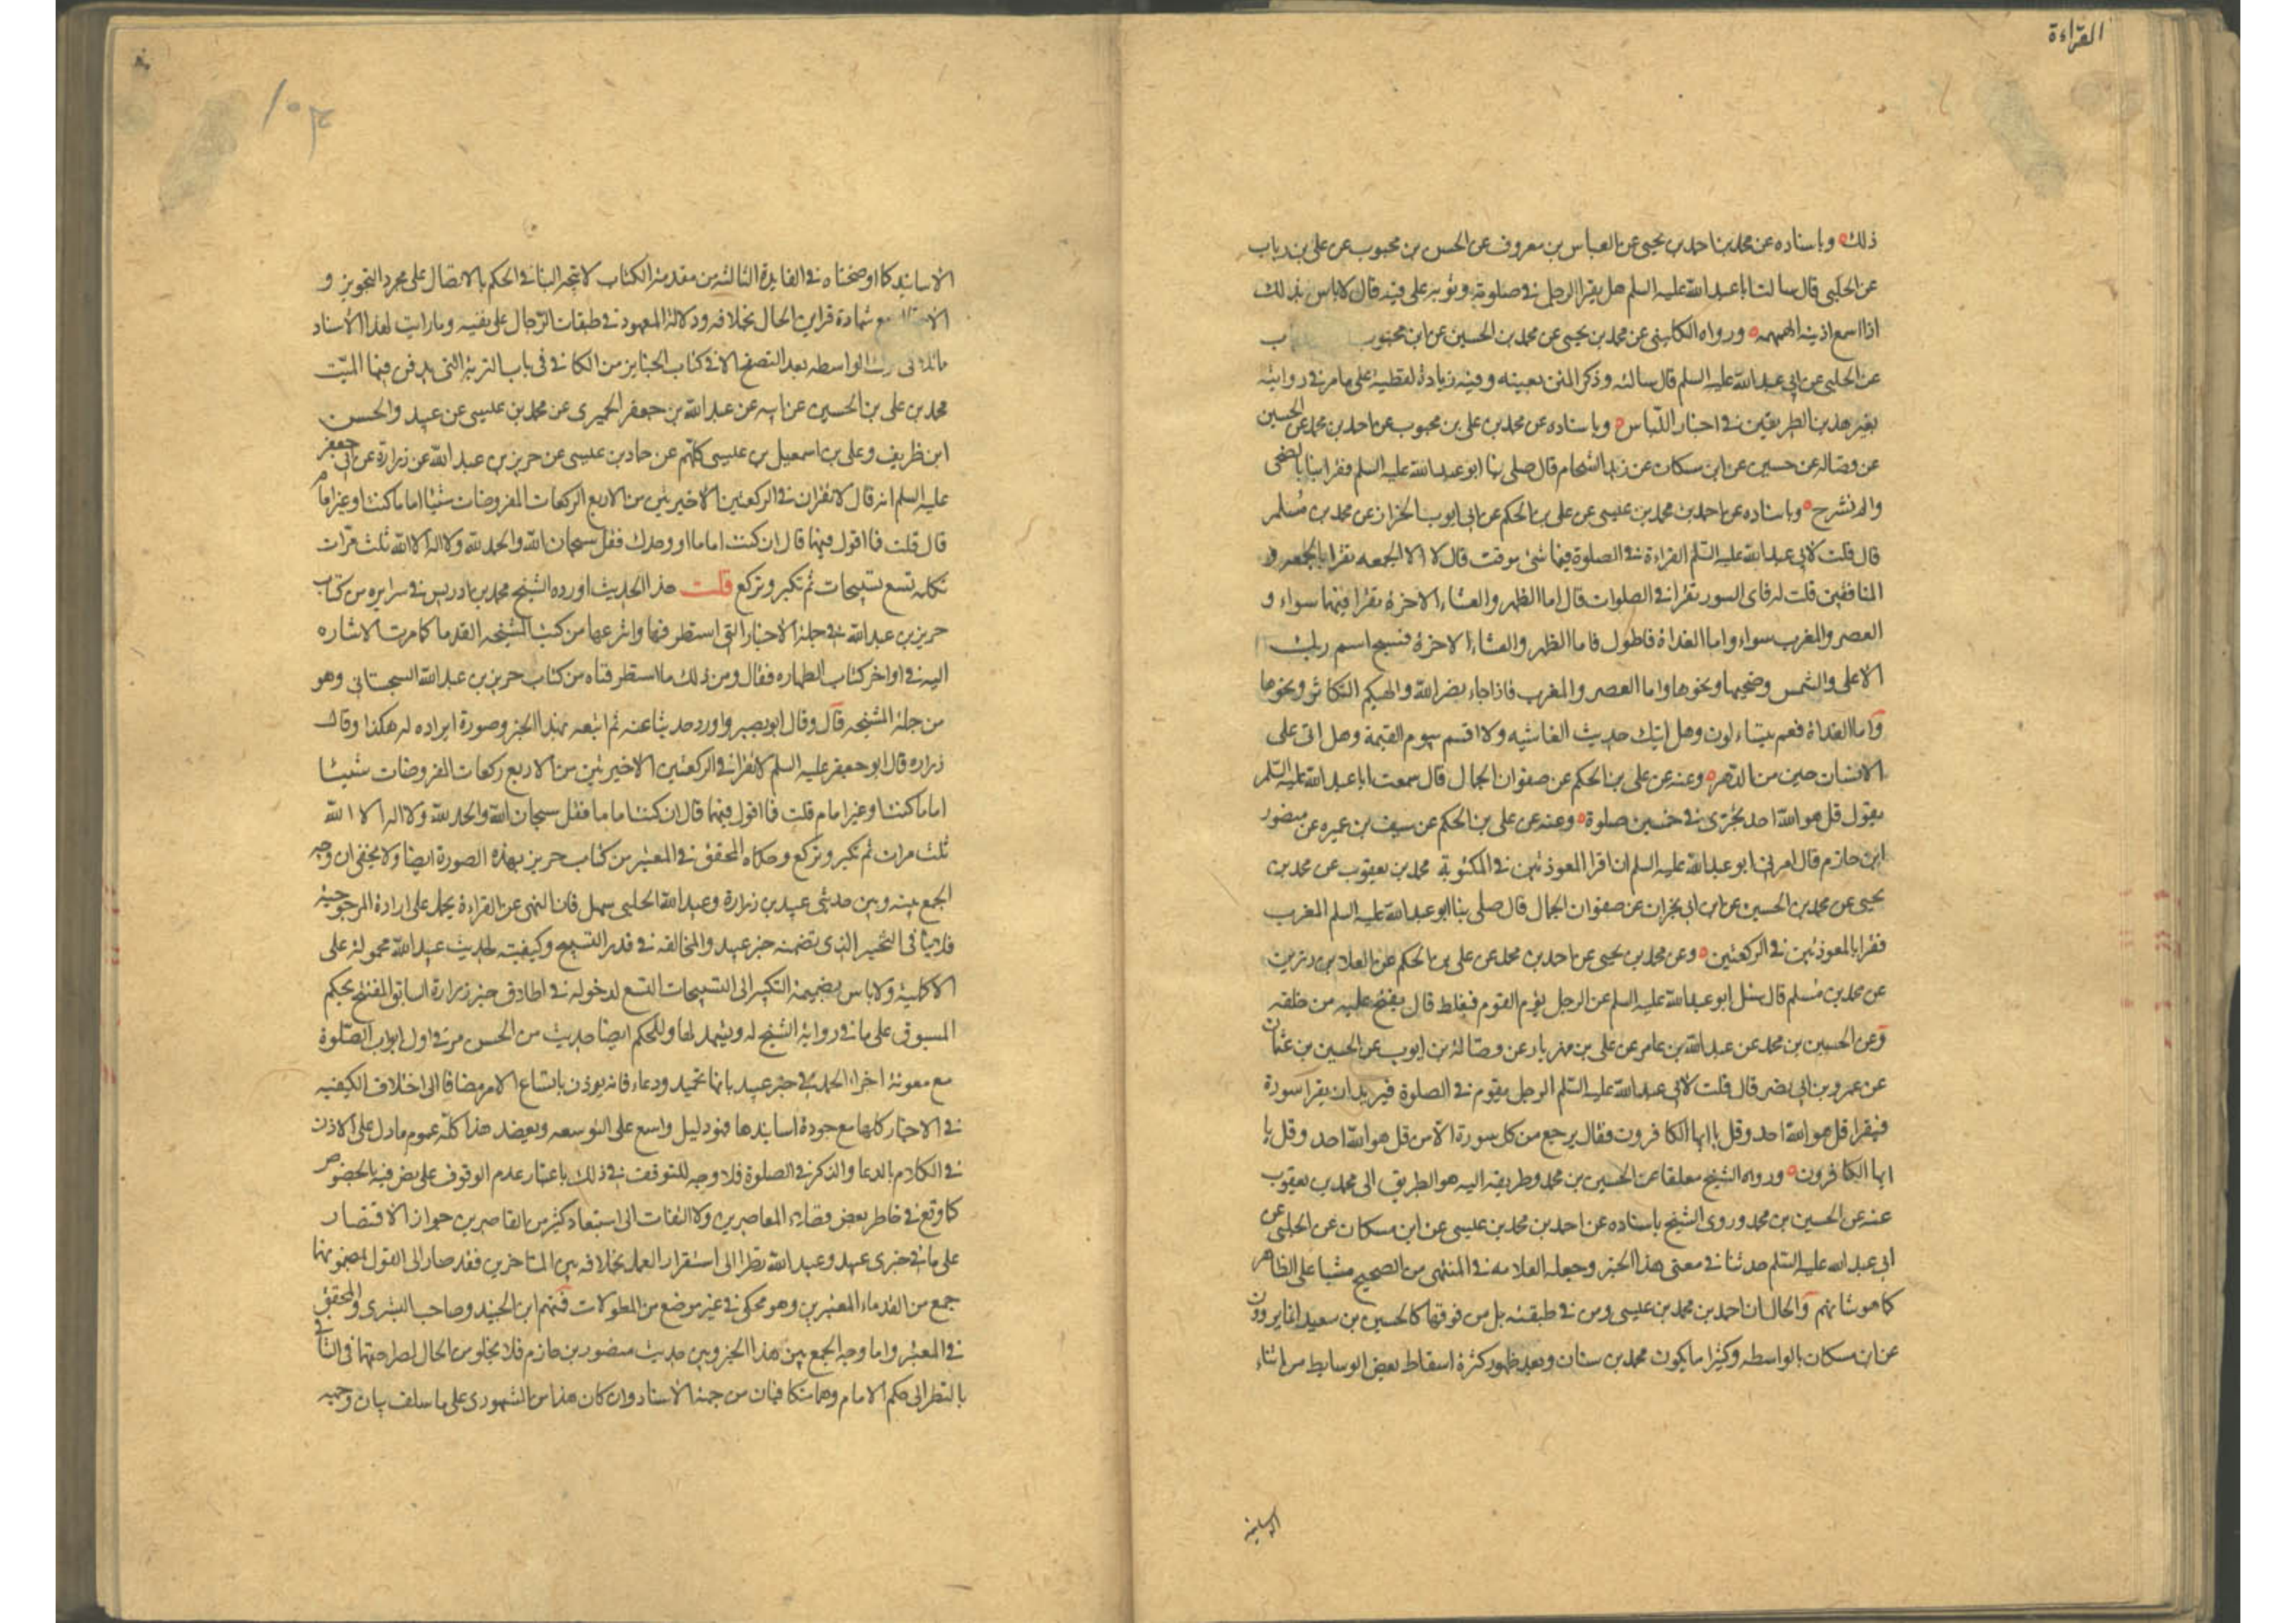 القراءة
ذلك وباسناده عن محمد بن احمد بن يحيى عن العباس بن معروف عن الحسن بن محبوب عن على بن رياب
عن الحلبى قال سالت ابا عبد الله عليه السلم هل يقرا الرجل فى صلوته وثوبه على فيه قال لاباس بذلك
اذا اسمع اذنيه الهمهمه ورواه الكلينى عن محمد بن يحيى عن محمد بن الحسين عن ابن محبوب
عن الحلبى عن ابى عبد الله عليه السلم قال سالته وذكر المتن بعينه وفيه زيادة لفظية على مامر فى روايته
بغير هذين الطريقين فى اخبار اللباس وباسناده عن محمد بن على بن محبوب عن احمد بن محمد عن الحسين
عن فضاله عن حسين عن ابن مسكان عن زيد الشحام قال صلى بنا ابو عبد الله عليه السلم فقرا بنا بالضحى
والم نشرح وباسناده عن احمد بن محمد بن عيسى عن على بن الحكم عن ابى ايوب الخزاز عن محمد بن مسلم
قال قلت لابى عبد الله عليه السلم القراءة فى الصلوة فيها شئ موقت قال لا الا الجمعه تقرا بالجمعه و
المنافقين قلت له فاى السور تقرا فى الصلوات قال اما الظهر والعشاء الاخرة تقرا فيهما سواء و
العصر والمغرب سواء واما الغداة فاطول فاما الظهر والعشاء الاخرة فسبح اسم ربك
الاعلى والشمس وضحيها ونحوها واما العصر والمغرب فاذا جاء نصر الله والهيكم التكاثر ونحوها
واما الغداة فعم يتساءلون وهل اتيك حديث الغاشيه ولا اقسم بيوم القيمة وهل اتى على
الانسان حين من الدهر وعنه عن على بن الحكم عن صفوان الجمال قال سمعت ابا عبد الله عليه السلم
يقول قل هو الله احد تجزى فى خمسين صلوة وعنه عن على بن الحكم عن سيف بن عميره عن منصور
ابن حازم قال امرنى ابو عبد الله عليه السلم ان اقرا المعوذتين فى المكتوبة محمد بن يعقوب عن محمد بن
يحيى عن محمد بن الحسين عن ابن ابى نجران عن صفوان الجمال قال صلى بنا ابو عبد الله عليه السلم المغرب
فقرا بالمعوذتين فى الركعتين وعن محمد بن يحيى عن احمد بن محمد عن على بن الحكم عن العلاء بن رزين
عن محمد بن مسلم قال سئل ابو عبد الله عليه السلم عن الرجل يؤم القوم فيغلط قال يفتح عليه من خلفه
وعن الحسين بن محمد عن عبد الله بن عامر عن على بن مهزيار عن فضالة بن ايوب عن الحسين بن عثمان
عن عمرو بن ابى نصر قال قلت لابى عبد الله عليه السلم الرجل يقوم فى الصلوة فيريد ان يقرا سورة
فيقرا قل هو الله احد وقل يا ايها الكافرون فقال يرجع من كل سورة الا من قل هو الله احد وقل يا
ايها الكافرون ورواه الشيخ معلقا عن الحسين بن محمد وطريقه اليه هو الطريق الى محمد بن يعقوب
عنه عن الحسين بن محمد وروى الشيخ باسناده عن احمد بن محمد بن عيسى عن ابن مسكان عن الحلبى عن
ابى عبد الله عليه السلم حديثا فى معنى هذا الخبر وجعله العلامه فى المنتهى من الصحيح مشيا على الظاهر
كما هو شانهم والحال ان احمد بن محمد بن عيسى ومن فى طبقته بل من فوقها كالحسين بن سعيد انما يروون
عن ابن مسكان بالواسطه وكثيرا ما يكون محمد بن سنان وبعد ظهور كثرة اسقاط بعض الوسايط من اثناء
الاسانيد
١٠٣
الاسانيد كما اوضحناه فى الفايدة الثالثه من مقدمة الكتاب لا يتجه البنا فى الحكم بالاتصال على مجرد التجويز و
مع شهادة قراين الحال بخلافه ودلالة المعهود فى طبقات الرجال على نفيه وما رايت لهذا الاسناد
الواسطه بعد التصفح الا فى كتاب الجنايز من الكافى فى باب التربة التى يدفن فيها الميت
محمد بن على بن الحسين عن ابيه عن عبد الله بن جعفر الحميرى عن محمد بن عيسى عن عبيد والحسن
ابن ظريف وعلى بن اسمعيل بن عيسى كلهم عن حماد بن عيسى عن حريز بن عبد الله عن زرارة عن ابى جعفر
عليه السلم انه قال لا تقران فى الركعتين الاخيرتين من الاربع الركعات المفروضات شيئا اماما كنت او غير امام
قال قلت فما اقول فيهما قال ان كنت اماما او وحدك فقل سبحان الله والحمد لله ولا اله الا الله ثلث مرات
تكمله تسع تسبيحات ثم تكبر وتركع قلت هذا الحديث اورده الشيخ محمد بن ادريس فى سرايره من كتاب
حريز بن عبد الله فى جملة الاخبار التى استطرفها وانتزعها من كتب المشيخه القدما كما مرت الاشاره
اليه فى اواخر كتاب الطهاره فقال ومن ذلك ما استطرفناه من كتاب حريز بن عبد الله السجستانى وهو
من جملة المشيخه قال وقال ابو بصير واورد حديثا عنه ثم اتبعه بهذا الخبر وصورة ايراده له هكذا وقال
زراره قال ابو جعفر عليه السلم لا تقرا فى الركعتين الاخيرتين من الاربع ركعات المفروضات شيئا
اماما كنت او غير امام قلت فما اقول فيهما قال ان كنت اماما فقل سبحان الله والحمد لله ولا اله الا الله
ثلث مرات ثم تكبر وتركع وحكاه المحقق فى المعتبر من كتاب حريز بهذه الصورة ايضا ولا يخفى ان وجه
الجمع بينه وبين حديثى عبيد بن زرارة وعبيد الله الحلبى سهل فان النهى عن القراءة يحمل على ارادة المرجوحية
فلا ينافى التخيير الذى تضمنه خبر عبيد والمخالفه فى قدر التسبيح وكيفيته لحديث عبيد الله محمولة على
الاكملية ولاباس بضميمة التكبير الى التسبيحات التسع لدخوله فى اطلاق خبر زرارة السابق المفتتح بحكم
المسبوق على ما فى رواية الشيخ له ويشهد لها وللحكم ايضا حديث من الحسن مر فى اول ابواب الصلوة
مع معونة اخراء الحمد فى خبر عبيد بانها تحميد ودعاء فانه يوذن باتساع الامر مضافا الى اختلاف الكيفيه
فى الاخبار كلها مع جودة اسانيدها فهو دليل واسع على التوسعه ويعضد هذا كله عموم مادل على الاذن
فى الكلام بالدعا والذكر فى الصلوة فلا وجه للتوقف فى ذلك باعتبار عدم الوقوف على نص فيه بالخصوص
كما وقع فى خاطر بعض فضلاء المعاصرين ولا التفات الى استبعاد كثير من القاصرين جواز الاقتصار
على ما فى خبرى عبيد وعبيد الله نظرا الى استقرار العمل بخلافه بين المتاخرين فقد صار الى القول بمضمونهما
جمع من القدماء المعتبرين وهو محكى فى غير موضع من المطولات فمنهم ابن الجنيد وصاحب البشرى والمحقق
فى المعتبر واما وجه الجمع بين هذا الخبر وبين حديث منصور بن حازم فلا يخلو من اشكال لصراحتهما فى التنافى
بالنظر الى حكم الامام وهما متكافئان من جهة الاسناد وان كان هذا من المشهورى على ما سلف بيان وجهه